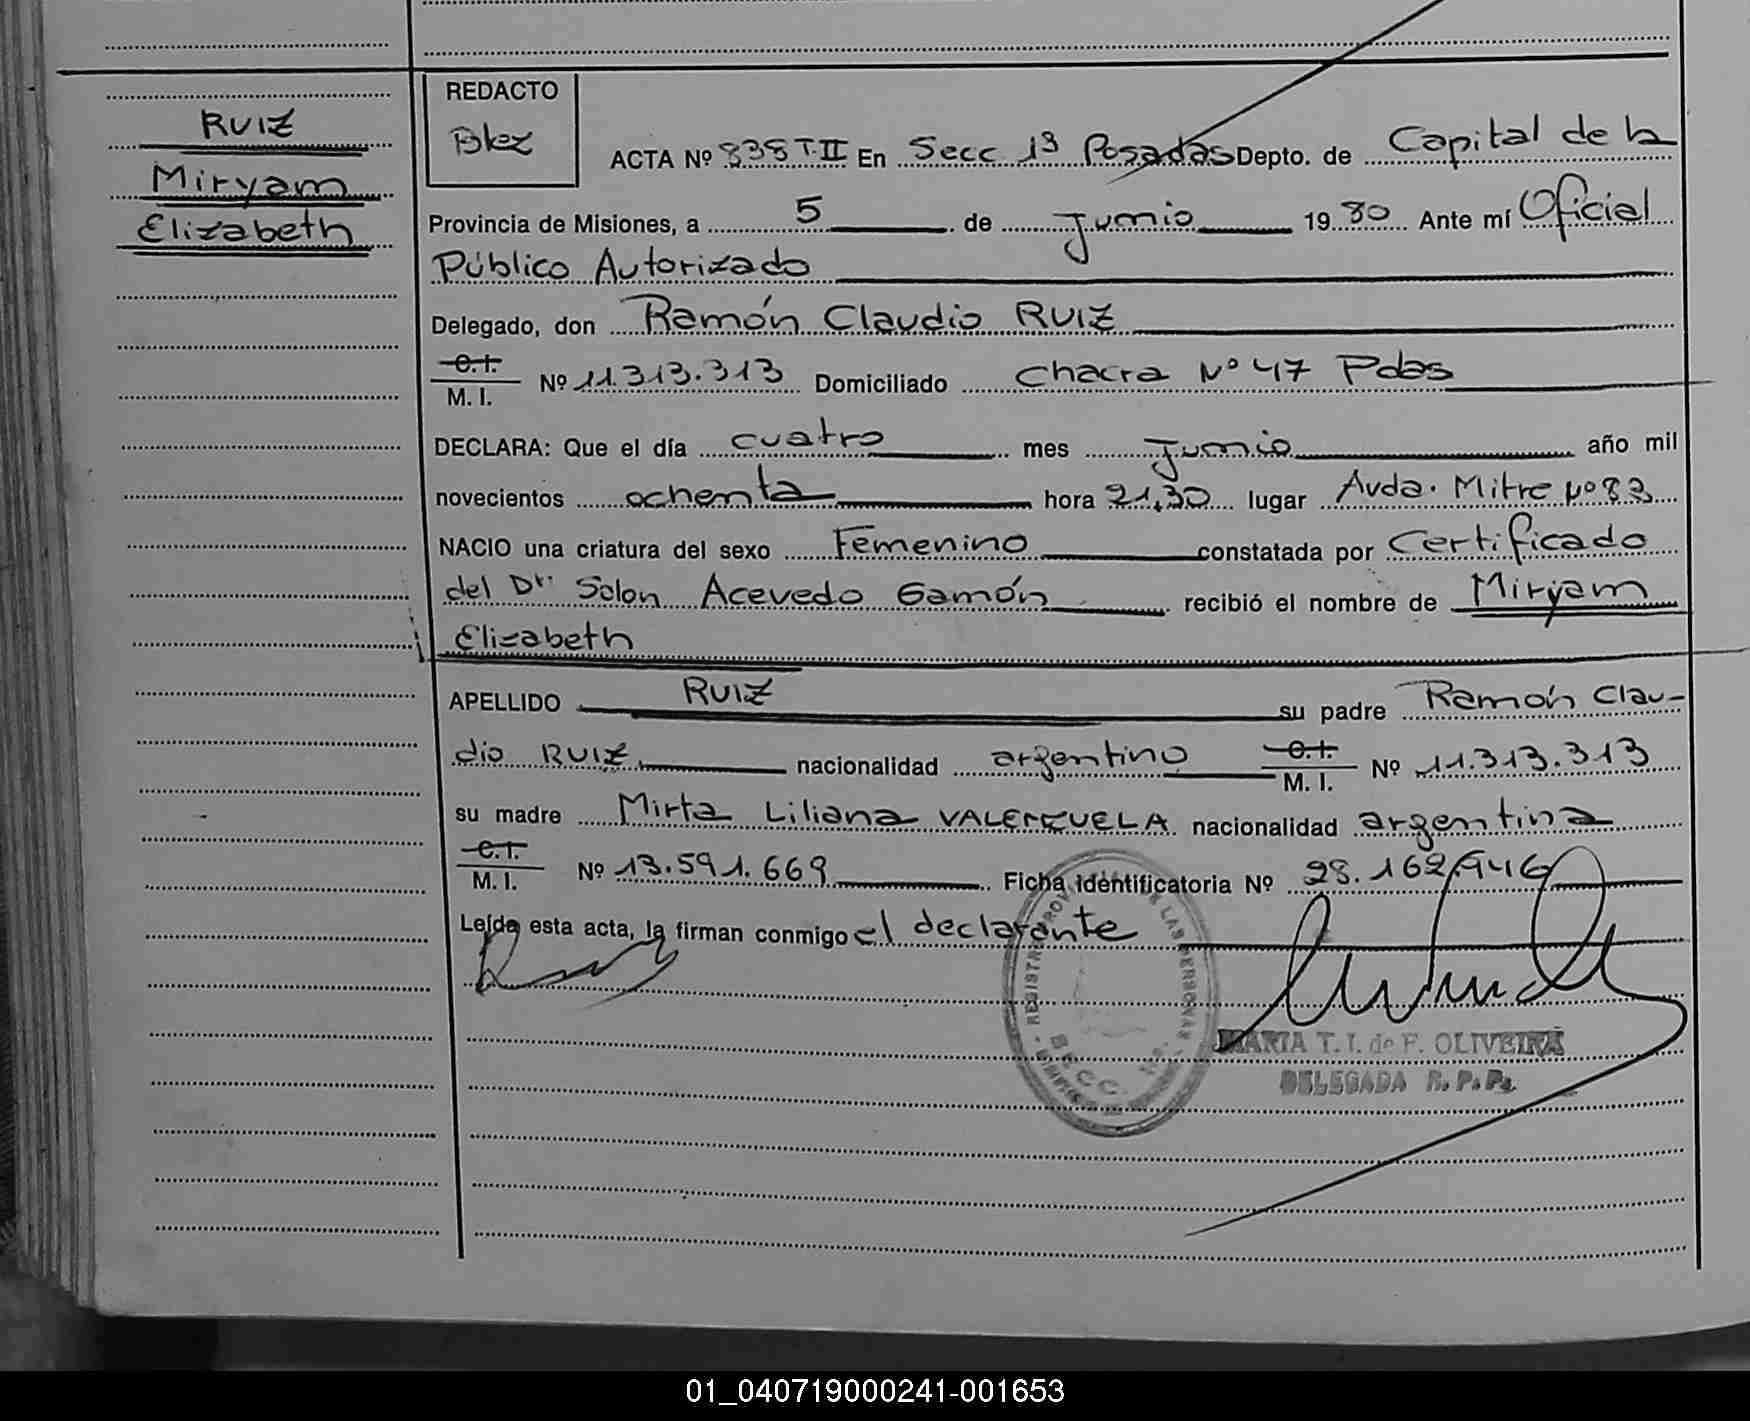 RUIZ
Miryam
Elizabeth
REDACTO
Blez
ACTA Nº 838 T.II En Secc 1ª Posadas Depto. de Capital de la
Provincia de Misiones, a 5 de Junio 19 80 Ante mí Oficial
Público Autorizado
Delegado, don Ramón Claudio RUIZ
C.I. M.I. Nº 11.313.313 Domiciliado Chacra Nº 47 Pdas
DECLARA: Que el día cuatro mes Junio año mil
novecientos ochenta hora 21,30 lugar Avda. Mitre Nº
NACIO una criatura del sexo Femenino constatada por Certificado
del Dr. Solon Acevedo Gamón recibió el nombre de Miryam
Elizabeth
APELLIDO RUIZ su padre Ramón Clau-
dio RUIZ nacionalidad argentino C.I. M.I. Nº 11.313.313
su madre Mirta Liliana VALENZUELA nacionalidad argentina
C.I. M.I. Nº 13.591.669 Ficha identificatoria Nº 28.162.946
Leída esta acta, la firman conmigo el declarante
REGISTRO PROV DE LAS PERSONAS
SECC.
MARIA T. I. de F. OLIVEIRA
DELEGADA R. P. P.
01_040719000241-001653